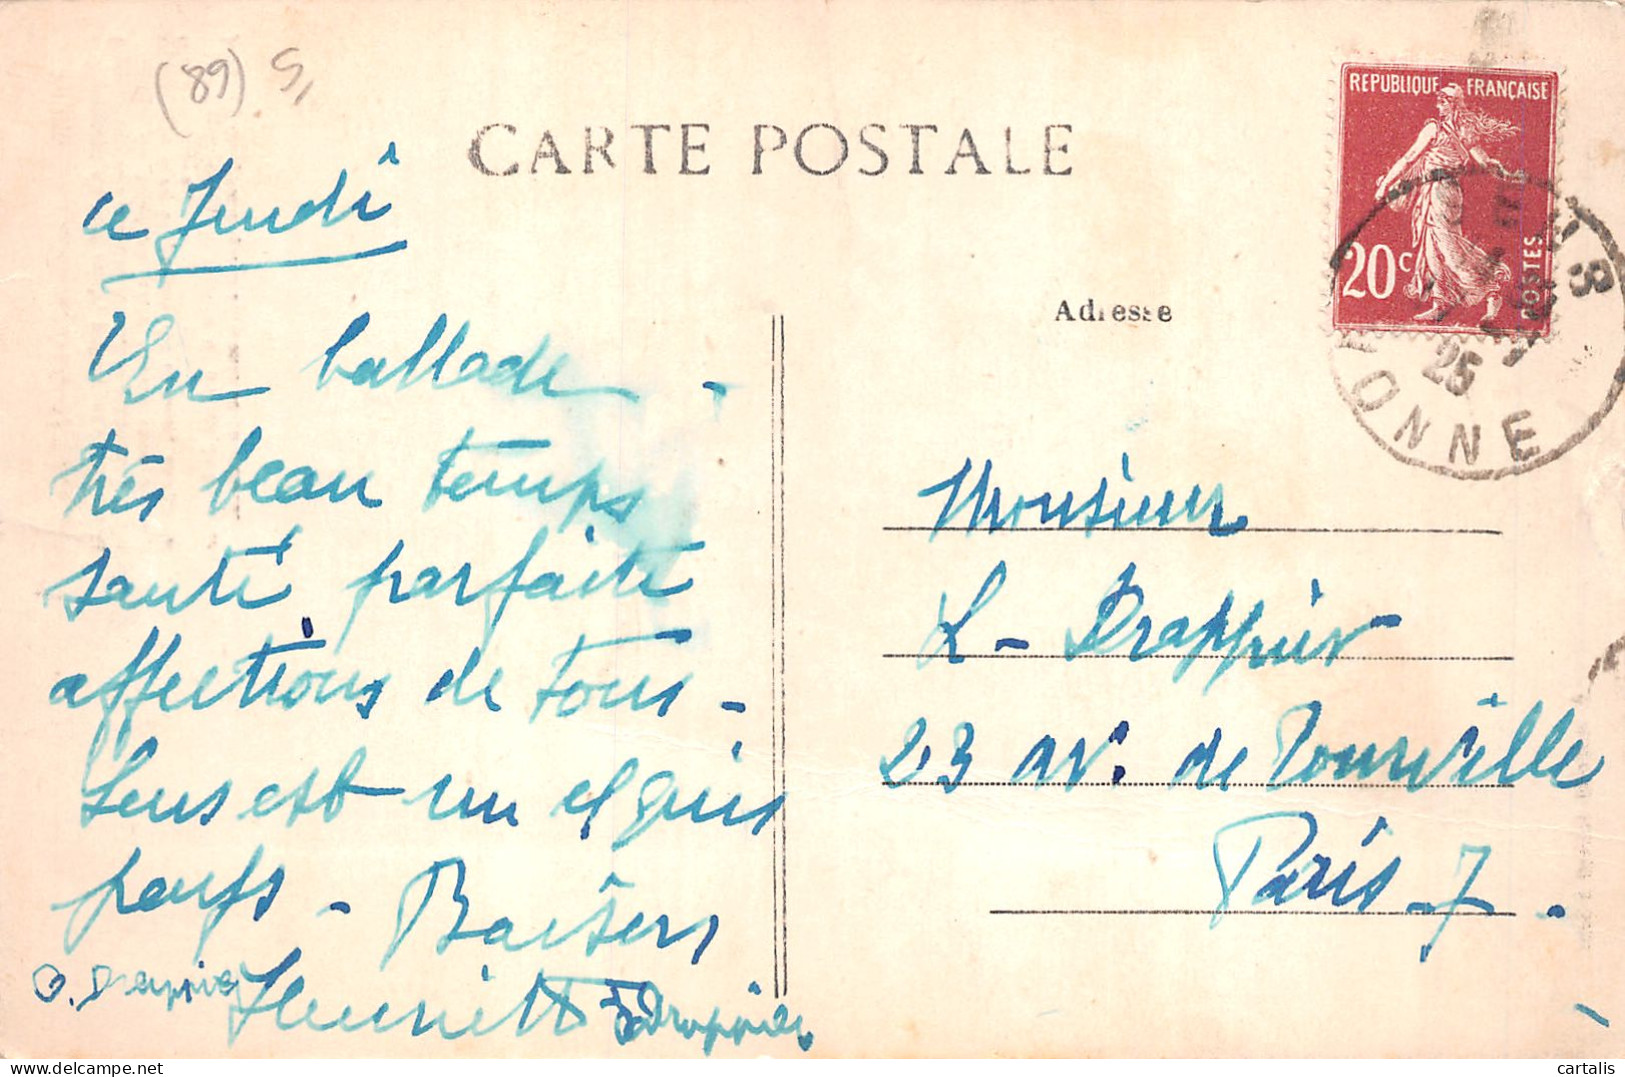 (89) 5,
CARTE POSTALE
REPUBLIQUE FRANÇAISE
20c
POSTES
YONNE
25
Adresse
ce Jeudi
En ballade -
très beau temps
santé parfaite
affections de tous -
Sens est un
- Baisers
Henriette
Drappier
D. Drappier
Monsieur
L - Drappier
23 av. de Tourville
Paris - 7 -
cartalis
delcampe.net